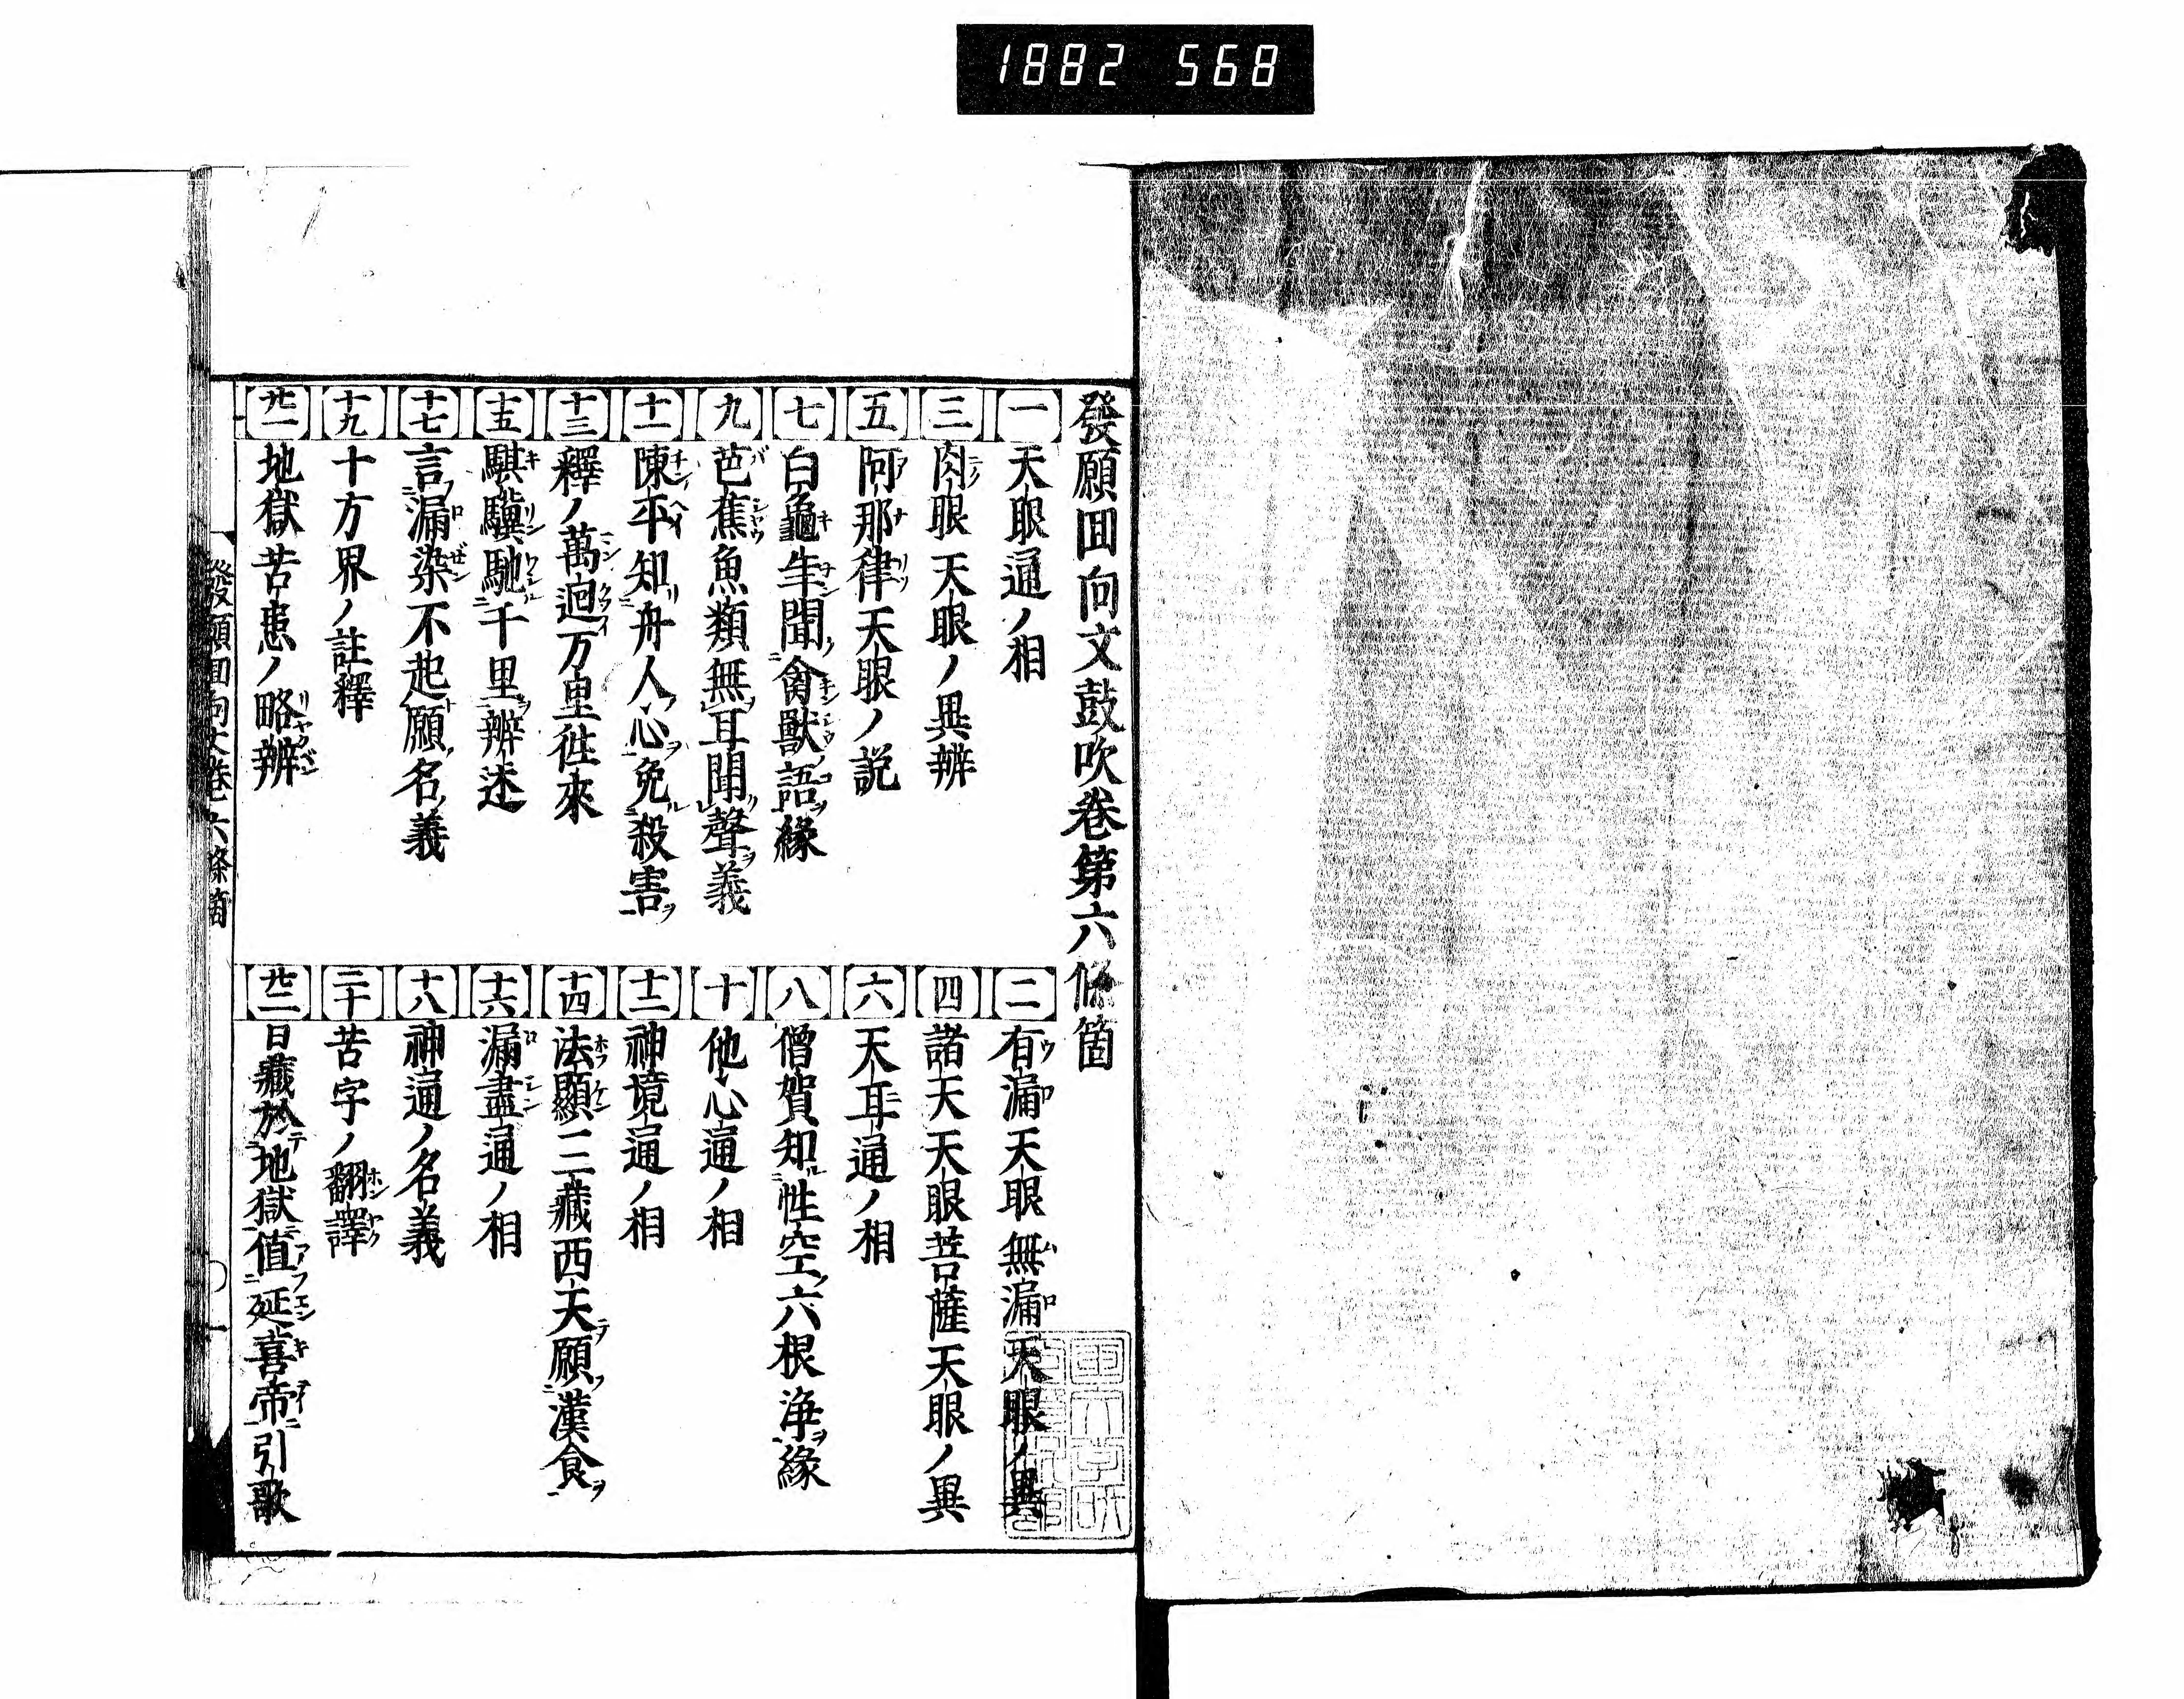 1882 568
發願回向文鼓吹卷第六條箇
一 天眼通ノ相
二 有漏天眼無漏天眼ノ異
三 肉眼天眼ノ異辨
四 諸天天眼菩薩天眼ノ異
五 阿那律天眼ノ説
六 天耳通ノ相
七 白龜年聞禽獸語縁
八 僧賀知性空六根淨縁
九 芭蕉魚類無耳聞聲義
十 他心通ノ相
十一 陳平知舟人心免殺害
十二 神境通ノ相
十三 釋ノ萬迴万里徃來
十四 法顯三藏西天願漢食
十五 騏驥馳千里辨迷
十六 漏盡通ノ相
十七 言漏染不起願名義
十八 神通ノ名義
十九 十方界ノ註釋
二十 苦字ノ翻譯
廿一 地獄苦患ノ略辨
廿二 日藏於地獄値延喜帝引歌
發願回向文卷六條箇 一